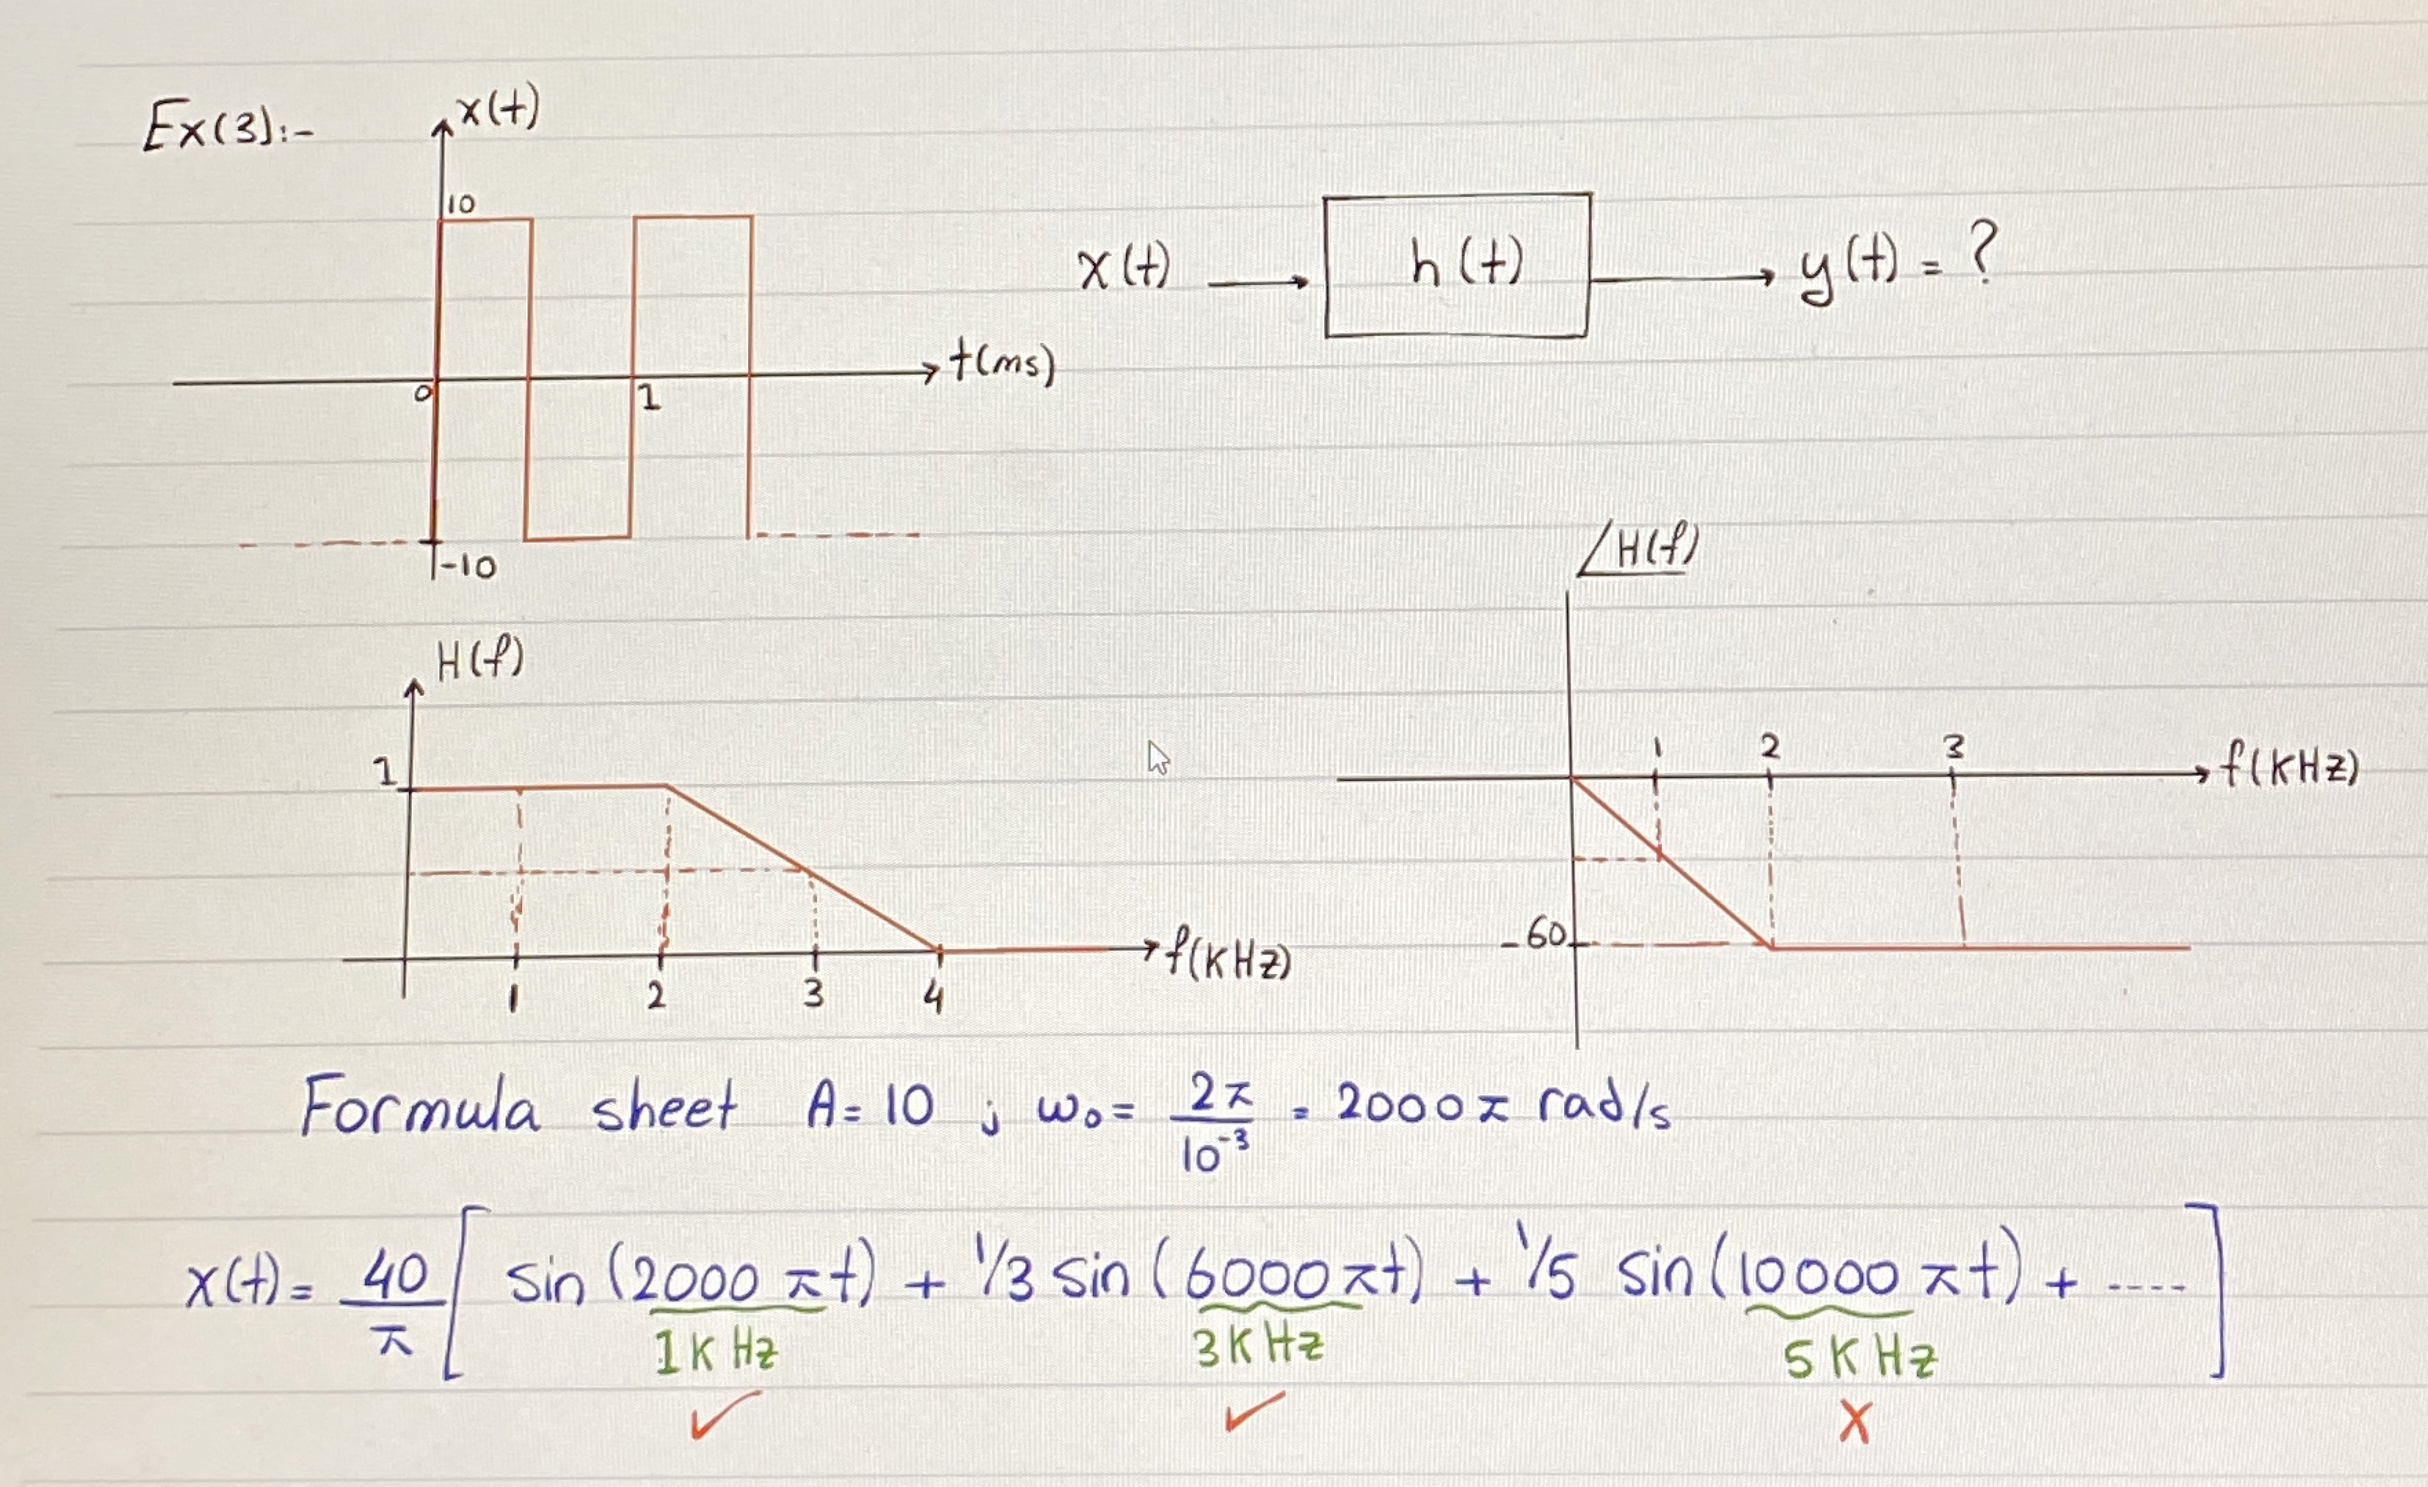 Ex(3):-
x(t)
10
0
1
t(ms)
-10
x(t) → h(t) → y(t) = ?
H(f)
1
1 2 3 4
f(KHz)
∠H(f)
1 2 3
f(KHz)
-60
Formula sheet A=10 ; ω₀= 2π/10⁻³ = 2000π rad/s
x(t)= 40/π [ sin(2000πt) + 1/3 sin(6000πt) + 1/5 sin(10000πt) + ---- ]
1KHz 3KHz 5KHz
✓ ✓ X